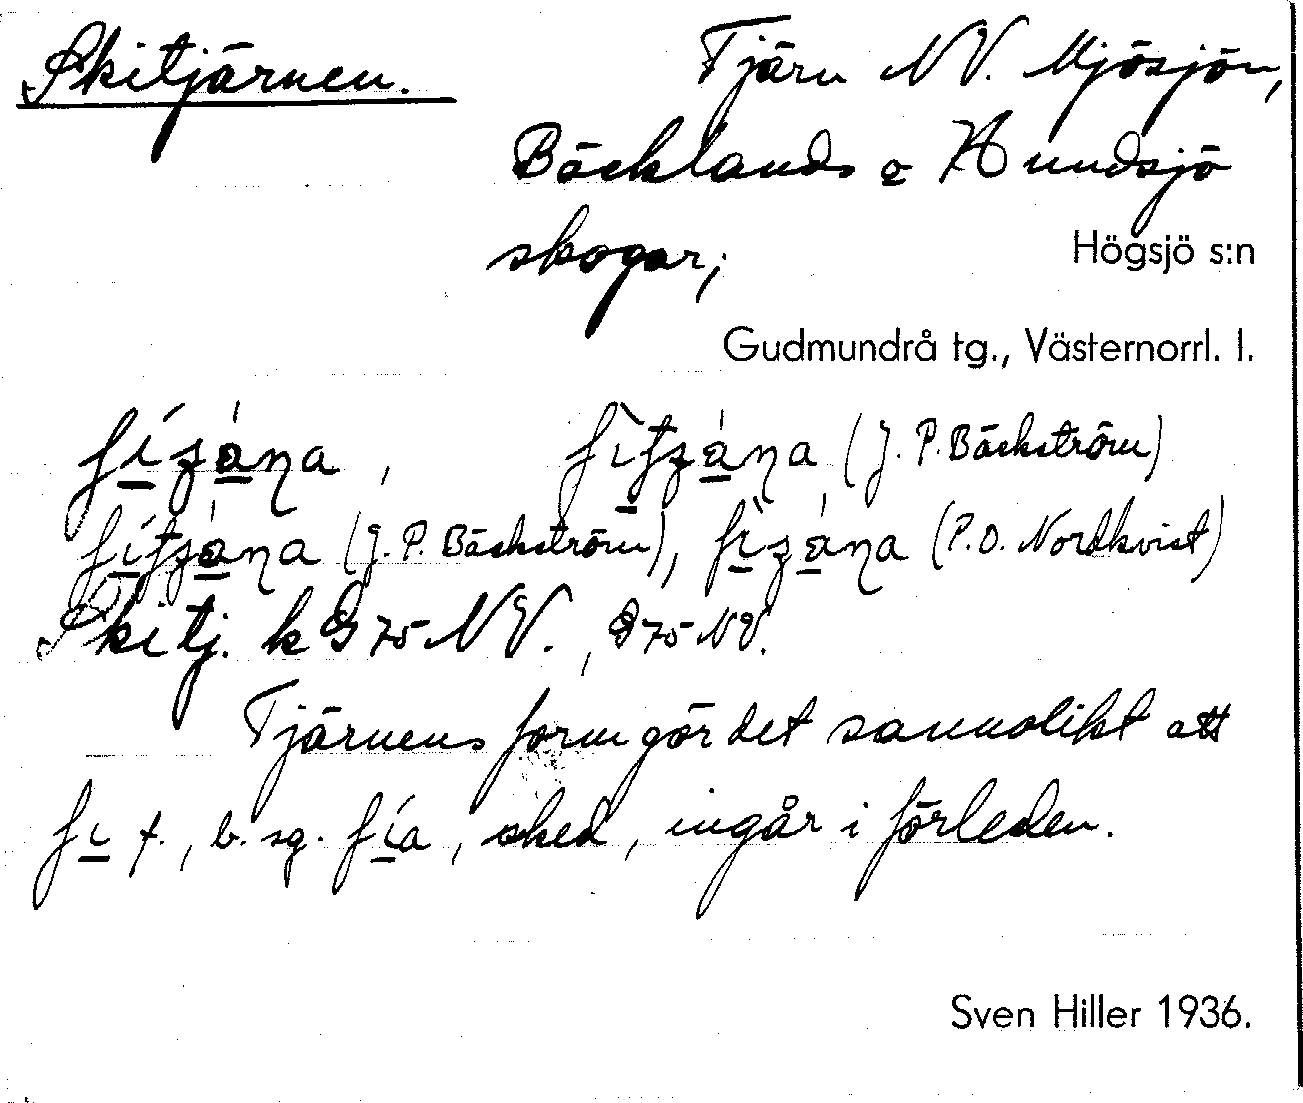 Skitjärnen. Tjärn NV. Mjösjön,
Bäcklands o Hundsjö
skogar; Högsjö s:n
Gudmundrå tg., Västernorrl. l.
(J. P. Bäckström)
(J. P. Bäckström), (P. O. Nordkvist)
Skitj. k G 75 NV., G 75 NV.
Tjärnens form gör det sannolikt att
f., b. sg. , sked, ingår i förleden.
Sven Hiller 1936.